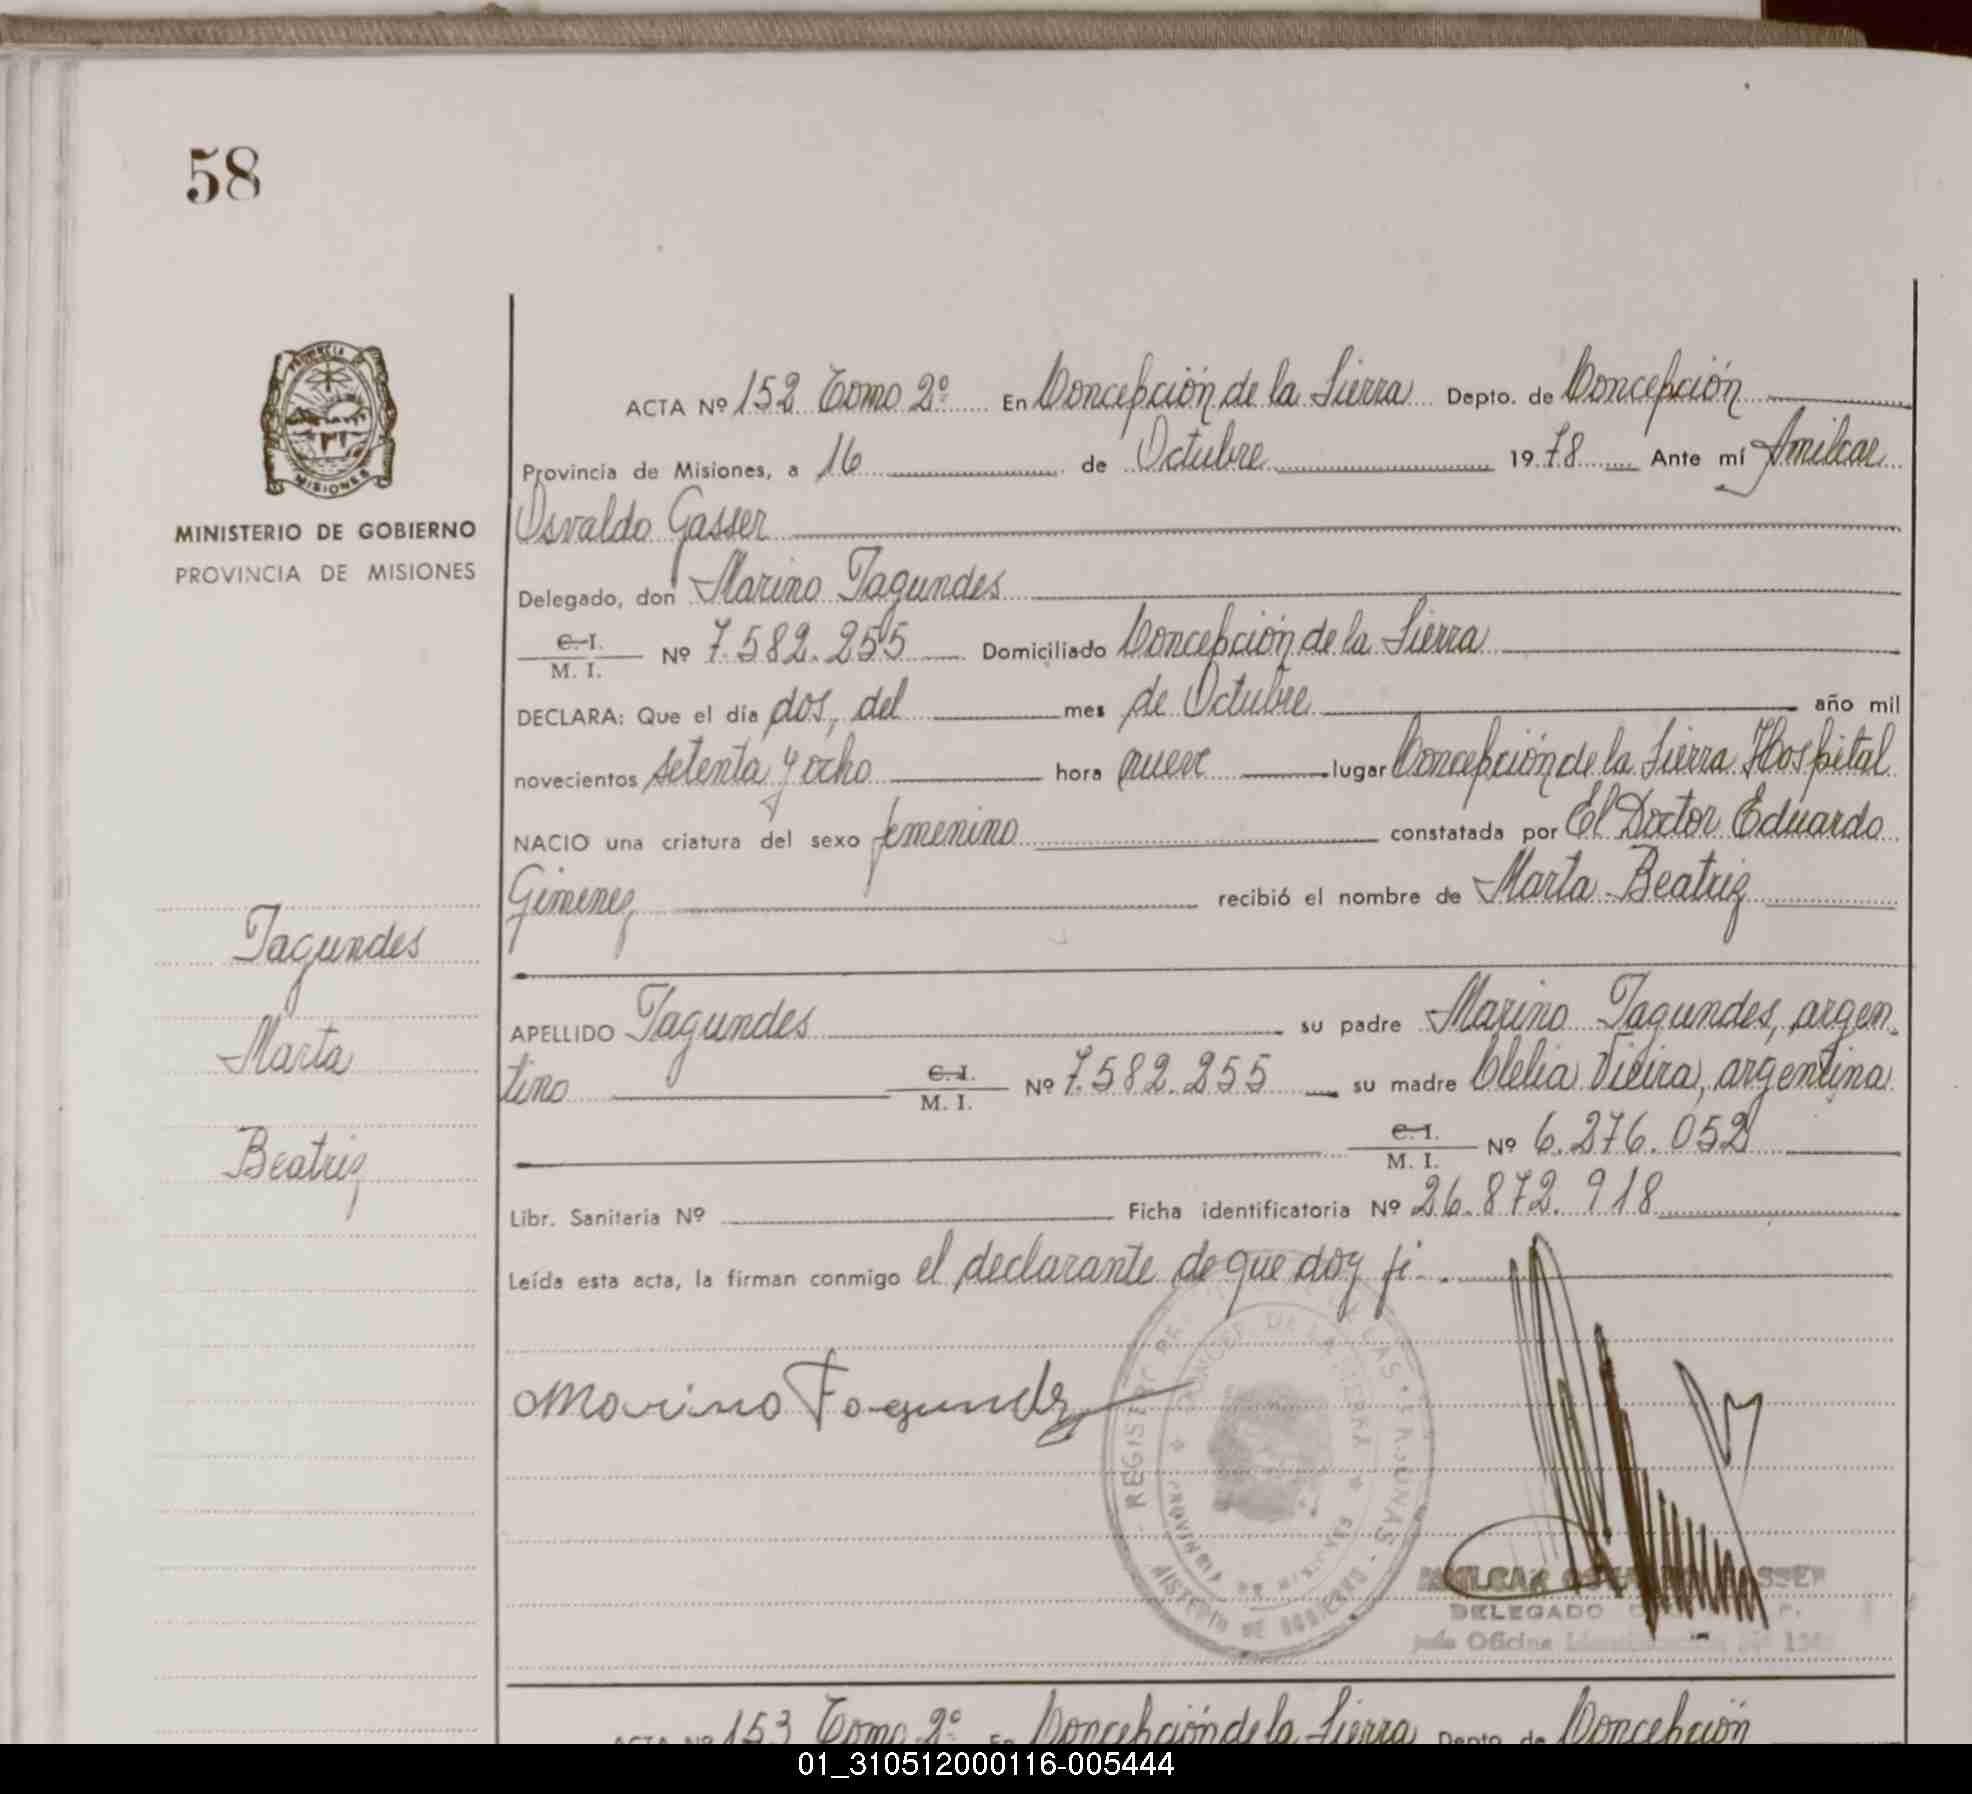 58
PROVINCIA DE
MISIONES
MINISTERIO DE GOBIERNO
PROVINCIA DE MISIONES
ACTA Nº 152 Tomo 2º En Concepción de la Sierra Depto. de Concepción
Provincia de Misiones, a 16 de Octubre 1978 Ante mí Amilcar
Osvaldo Gasser
Delegado, don Marino Fagundes
C. I.
M. I. Nº 7.582.255 Domiciliado Concepción de la Sierra
DECLARA: Que el día dos, del mes de Octubre año mil
novecientos setenta y ocho hora nueve lugar Concepción de la Sierra Hospital
NACIO una criatura del sexo femenino constatada por El Doctor Eduardo
Gimenez recibió el nombre de Marta Beatriz
Fagundes
Marta
Beatriz
APELLIDO Fagundes su padre Marino Fagundes, argen-
tino C. I.
M. I. Nº 7.582.255 su madre Clelia Vieira, argentina
C. I.
M. I. Nº 6.276.052
Libr. Sanitaria Nº Ficha identificatoria Nº 26.872.918
Leída esta acta, la firman conmigo el declarante de que doy fé.
Marino Fagundez
REGISTRO DE LAS PERSONAS
DE LA SIERRA
PROVINCIA DE MISIONES
MINISTERIO DE GOBIERNO
AMILCAR OSVALDO GASSER
DELEGADO
Oficina
ACTA Nº 153 Tomo 2º En Concepción de la Sierra Depto. de Concepción
01_310512000116-005444